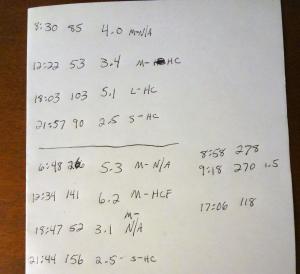 8:30 85 4.0 M-N/A
12:22 53 3.4 M- HC
18:03 103 5.1 L-HC
21:57 90 2.5 S-HC
6:48 5.3 M- N/A
12:34 141 6.2 M-HCF
18:47 52 3.1 M- N/A
21:44 156 2.5- S-HC
8:58 278
9:18 270 1.5
17:06 118